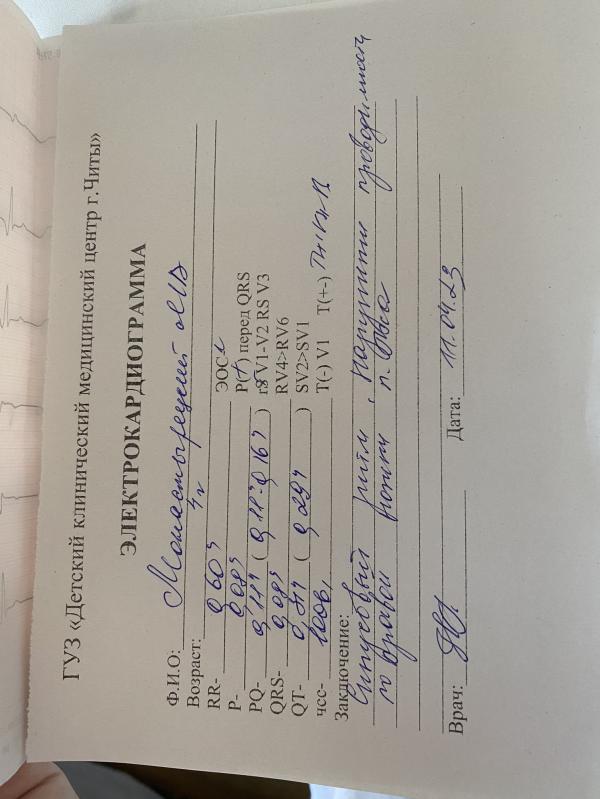 ГУЗ «Детский клинический медицинский центр г.Читы»
ЭЛЕКТРОКАРДИОГРАММА
Ф.И.О: Монастырецкий
Возраст: 4 г
RR- 0,60" ЭОС
P- 0,08" P(+) перед QRS
PQ- 0,11" (0,11"-0,16") rS V1-V2 RS V3
QRS- 0,08" RV4>RV6
QT- (0,29") SV2>SV1
чсс- 100 в 1' T(-) V1 T(+-)
Заключение:
Синусовый ритм, нарушение проводимости
по правой ножке п. Гиса
Врач: Дата: 11.04.23